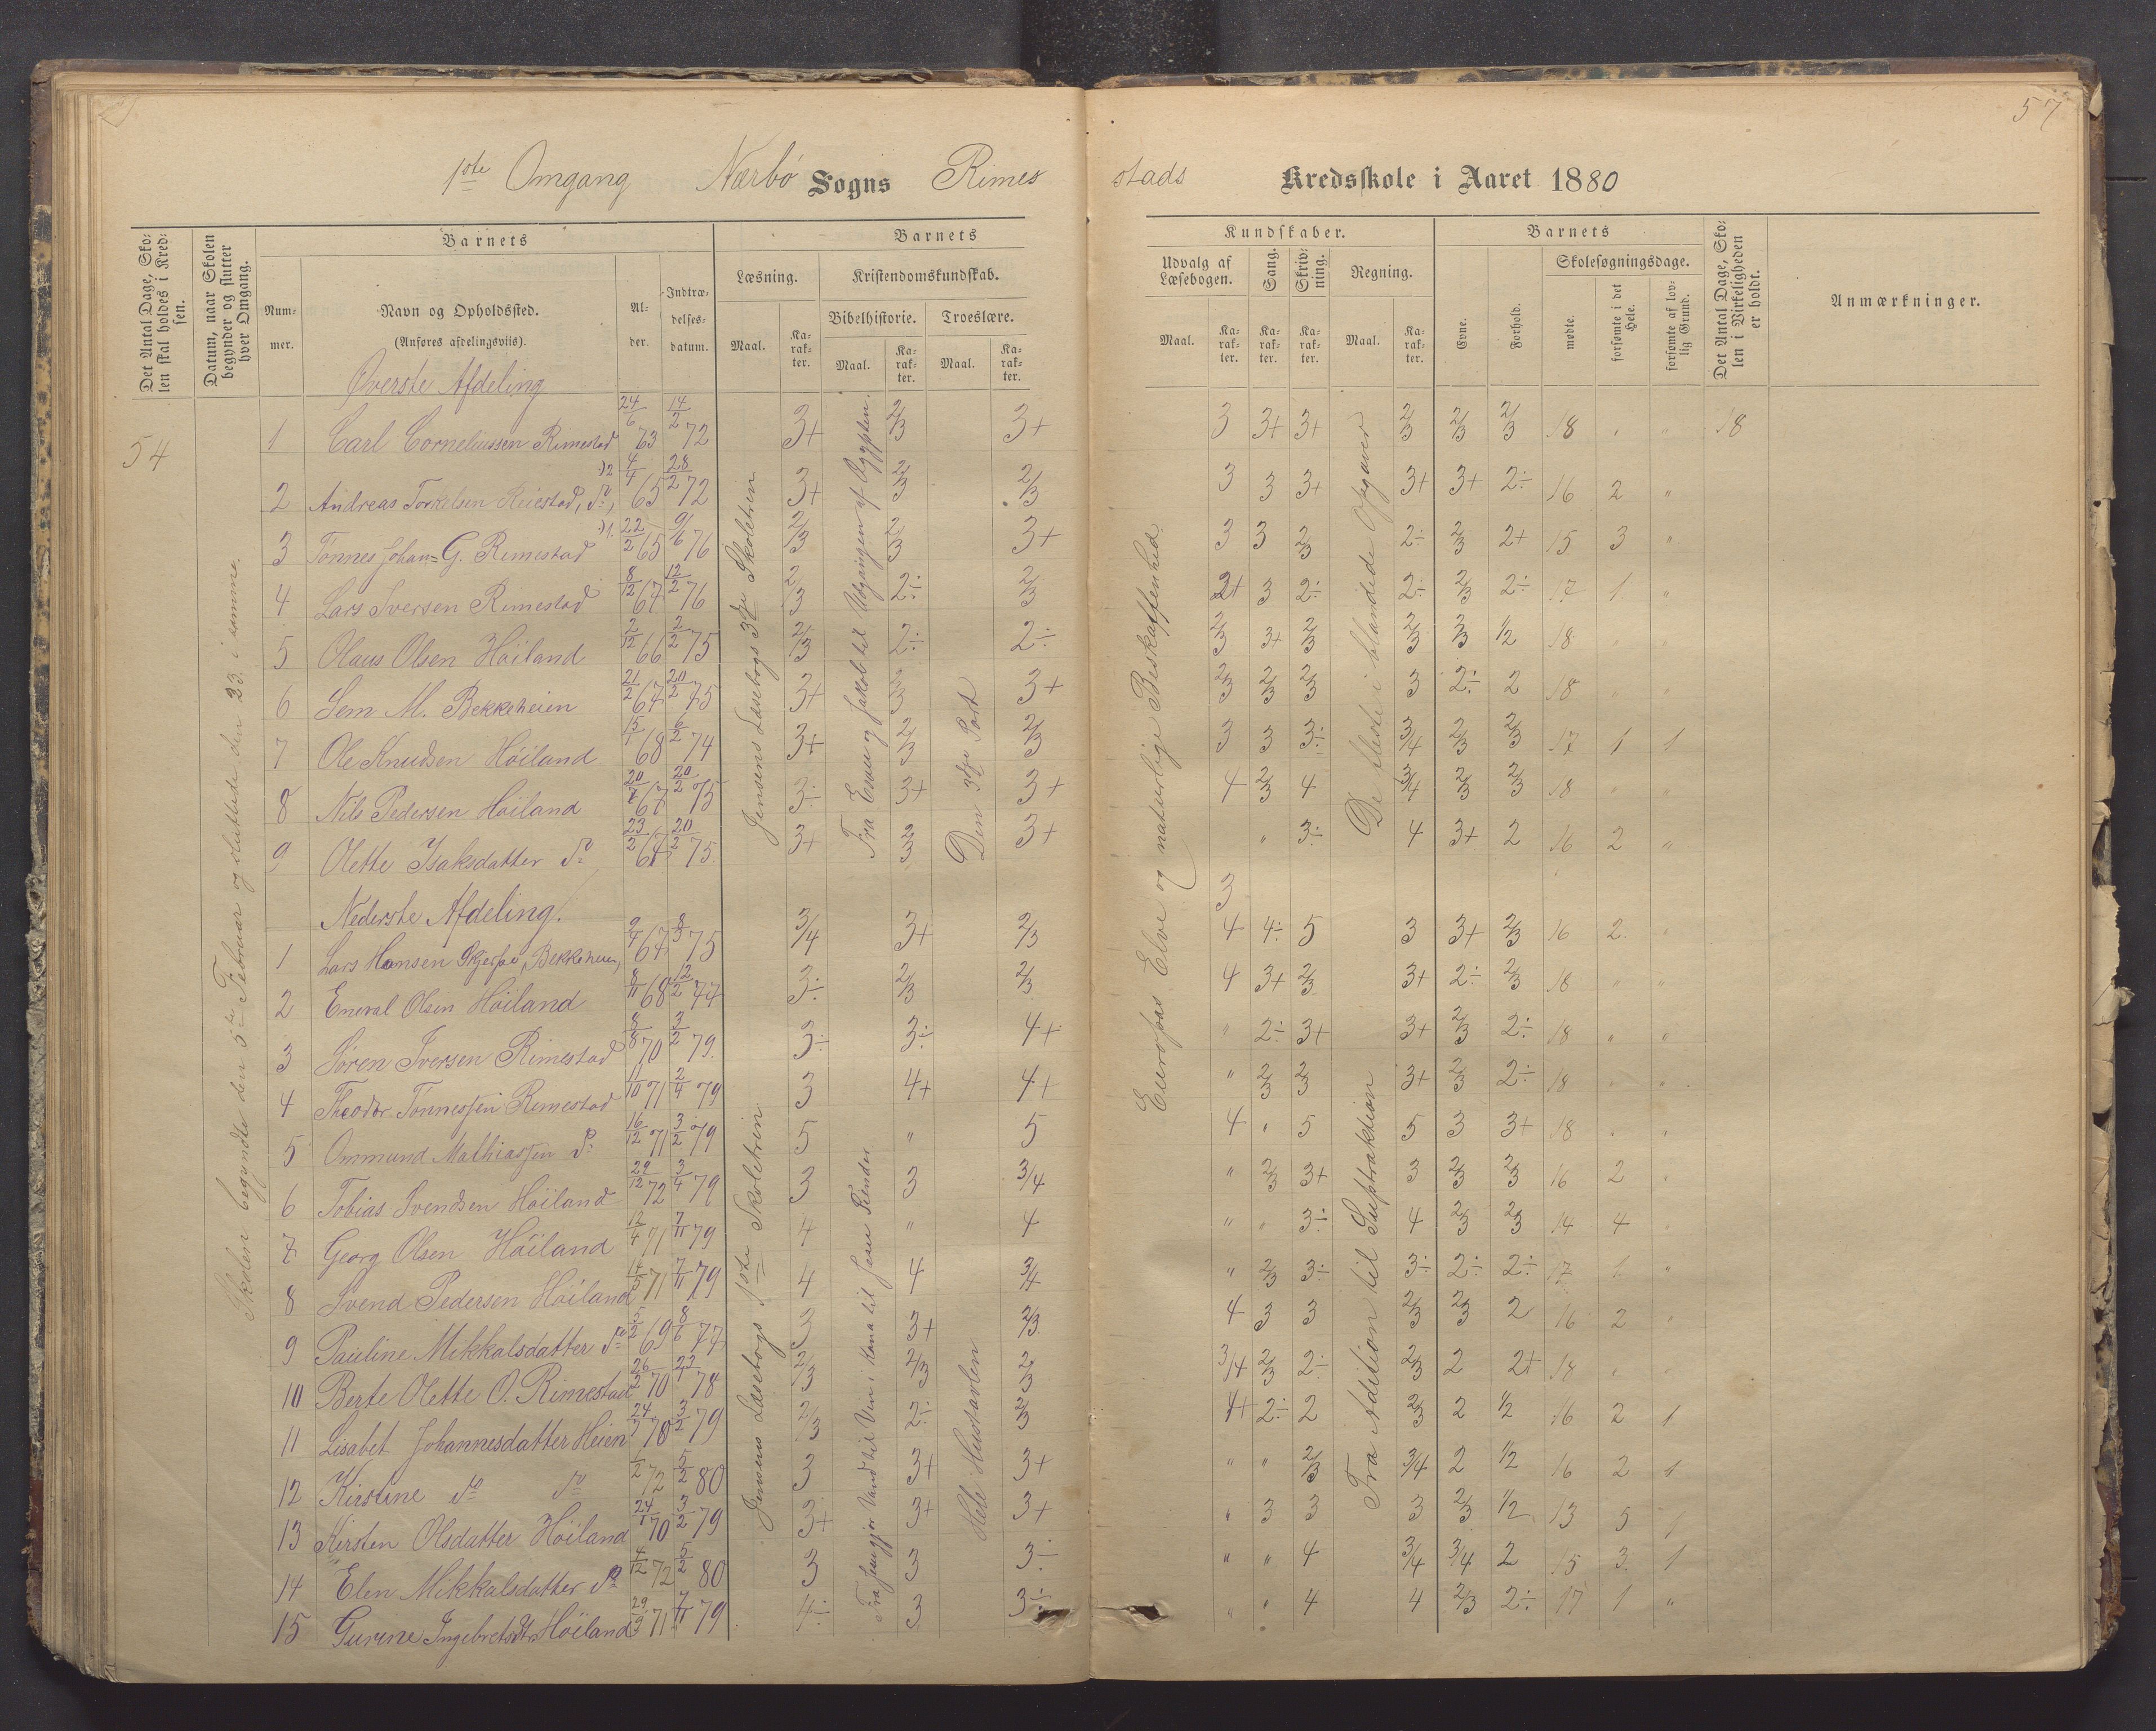 57
1ste Omgang Nærbø Sogns Rimes stads Kredsskole i Aaret 1880
Det Antal Dage, Skolen skal holdes i Kredsen.
Datum, naar Skolen begynder og slutter hver Omgang.
Barnets
Nummer.
Navn og Opholdssted.
(Anføres afdelingsviis).
Alder.
Indtrædelsesdatum.
Barnets
Læsning.
Maal.
Karakter.
Kristendomskundskab.
Bibelhistorie.
Maal.
Karakter.
Troeslære.
Maal.
Karakter.
Kundskaber.
Udvalg af Læsebogen.
Maal.
Karakter.
Sang.
Karakter.
Skrivning.
Karakter.
Regning.
Maal.
Karakter.
Barnets
Evne.
Forhold.
Skolesøgningsdage.
mødte.
forsømte i det Hele.
forsømte af lovlig Grund.
Det Antal Dage, Skolen i Virkeligheden er holdt.
Anmærkninger.
54
Skolen begyndte den 5te Februar og sluttede den 23. i samme.
Jensens Læsebogs 3die Skoletrin
Fra Esau og Jakob til Udgangen af Ægypten.
Den 3die Part
Europas Elve og naturlige Beskaffenhed.
De fleste i blandede Opgaver
Øverste Afdeling
1 Carl Corneliussen Rimestad 24/6 63 14/2 72 3+ 2/3 3+ 3 3+ 3+ 2/3 2/3 2/3 18 " " 18
2 Andreas Torkelsen Reiestad, do, 4/4 65 28/2 72 3+ 2/3 2/3 3 3 3+ 3+ 3+ 2÷ 16 2 "
3 Tønnes Johan G. Rimestad 22/2 65 9/6 76 2/3 2/3 3+ 3 3 2/3 2÷ 2/3 2+ 15 3 "
4 Lars Iversen Rimestad 8/12 67 12/2 76 2/3 2÷ 2/3 2+ 3 2÷ 2÷ 2/3 2÷ 17 1 "
5 Olaus Olsen Høiland 2/12 66 2/2 75 2/3 2÷ 2÷ 2/3 3+ 2/3 2/3 2/3 1/2 18
6 Sem M. Bekkeheien 21/2 67 20/2 75 3+ 2/3 3+ 2/3 2/3 2/3 3 2÷ 2 18 " "
7 Ole Knudsen Høiland 15/1 68 6/2 74 3+ 2/3 2/3 3 3 3÷ 3/4 2/3 2/3 17 1 1
8 Nils Pedersen Høiland 67 20/2 75 3÷ 3+ 3+ 4 2/3 4 3/4 2/3 2/3 18 " "
9 Olette Isaksdatter do 23/2 67 20/2 75 3+ 2/3 3+ 3 " 3÷ 4 3+ 2 16 2 "
Jensens Læsebogs 1ste Skoletrin
Fra Jesus gjør Vand til Vin i Kana til Jesu Fiender
Hele Hustavlen
Fra Adition til Suptraktion
Nederste Afdeling.
1 Lars Hansen Skjerpe, Bekkeheien, 9/4 67 8/3 75 3/4 3+ 2/3 4 4÷ 5 3 3+ 2/3 16 2 "
2 Eneval Olsen Høiland 8/11 68 12/2 77 3÷ 2/3 2/3 4 3+ 2/3 3+ 2÷ 2/3 18 " "
3 Søren Iversen Rimestad 8/8 70 3/2 79 3÷ 3÷ 4+ " 2÷ 3+ 3+ 2/3 2÷ 18 " "
4 Theodor Tønnessen Rimestad 11/10 71 2/4 79 3 4+ 4+ " 2/3 2/3 3+ 2/3 2÷ 18 " "
5 Ommund Mathiassen do 16/12 71 3/2 79 5 " 5 4 " 5 5 3 3+ 18 " "
6 Tobias Svendsen Høiland 29/12 72 3/4 79 3 3 3/4 " 2/3 3+ 3 2/3 2/3 16 2 "
7 Georg Olsen Høiland 12/4 71 7/11 79 4 " 4 " " 3÷ 4 2/3 2/3 14 4 "
8 Svend Pedersen Høiland 14/5 71 7/11 79 4 4 3/4 " 2/3 3÷ 3÷ 2÷ 2÷ 17 1 "
9 Pauline Mikkalsdatter do 5/2 69 8/6 77 3 3+ 2/3 4 3 3 2/3 2/3 2 16 2 "
10 Berte Olette O. Rimestad 26/2 70 78 2/3 2/3 2/3 3/4 2/3 2÷ 2/3 2 2+ 18 " "
11 Lisabet Johannesdatter Heien 70 3/2 79 2/3 2÷ 2/3 4+ 2÷ 2 2/3 2 1/2 16 2 1
12 Kirstine do do 1/2 72 5/2 80 3 3+ 3+ " " 2/3 3/4 2 1/2 16 2 1
13 Kirsten Olsdatter Høiland 24/1 70 3/2 79 3+ 3+ 3+ " 3 3 3 2/3 1/2 13 5 1
14 Elen Mikkalsdatter do 4/12 72 5/2 80 3 3 3÷ " " 4 3/4 3/4 2 15 3 1
15 Gurine Ingebretsdtr. Høiland 29/9 71 7/11 79 4÷ 3 3÷ " " 4 4 2/3 2÷ 17 1 "